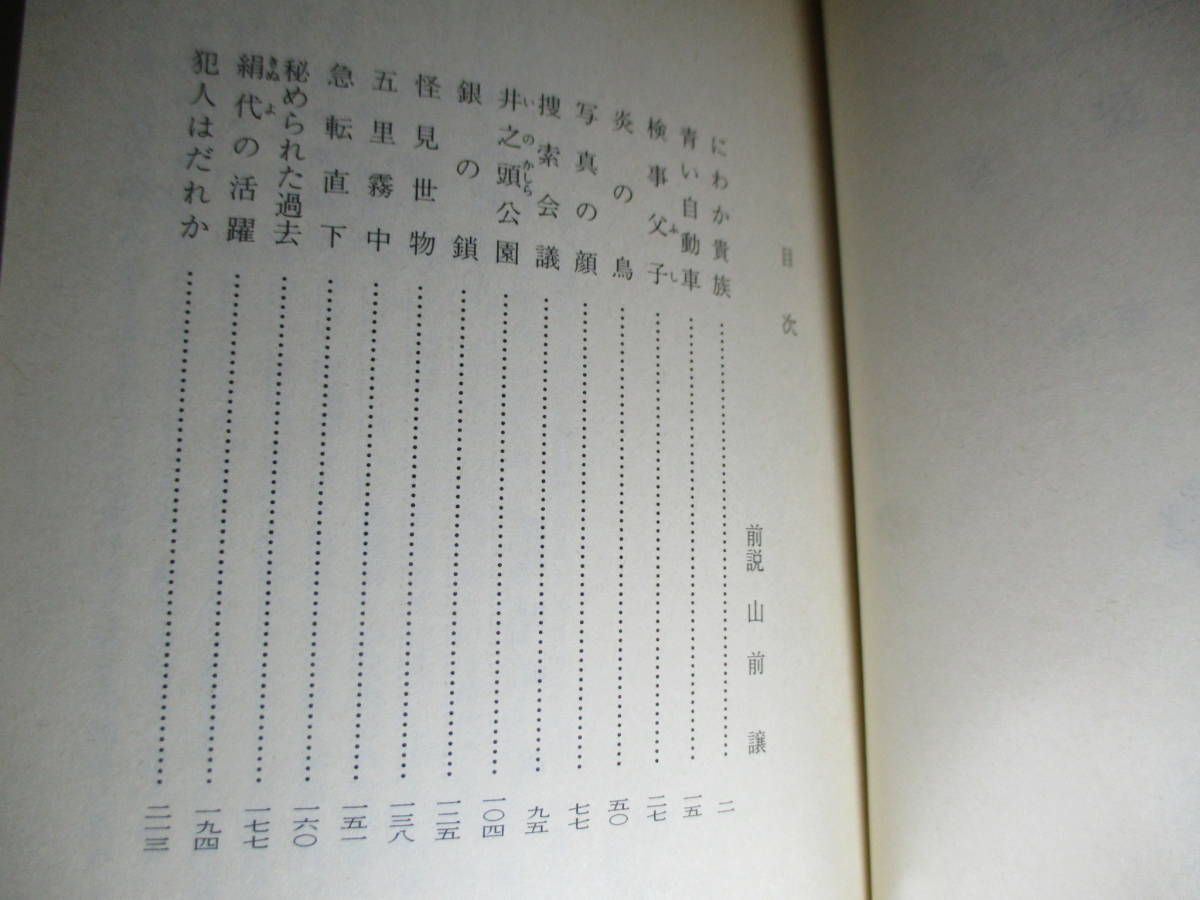 目次
前説 山前 譲
にわか貴族……二
青い自動車……一五
検事父子……二七
炎の鳥……五〇
写真の顔……七七
捜索会議……九五
井之頭公園……一〇四
銀の鎖……一二五
怪見世物……一三八
五里霧中……一五一
急転直下……一六〇
秘められた過去……一七七
絹代の活躍……一九四
犯人はだれか……二一三